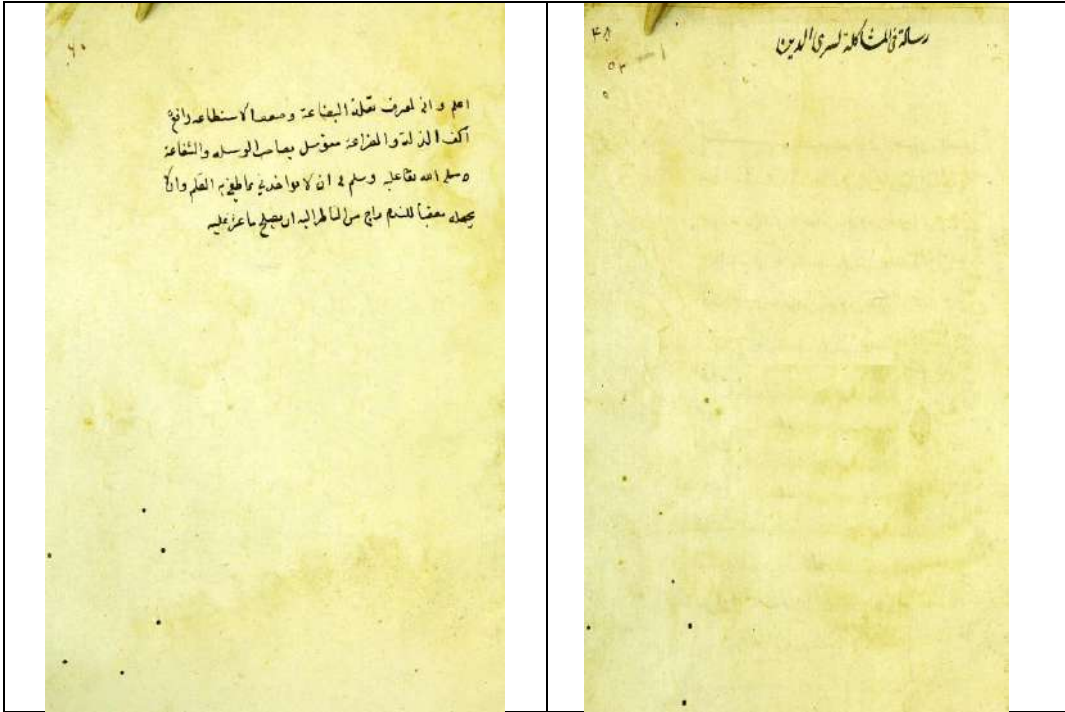 ٤٨
رسالة في المشاكلة لسرى الدين
٥٣
٦٠
اعلم واني لمعرف بقلة البضاعة وضعف الاستطاعه رافع
اكف الذلة والضراعة متوسل بصاحب الوسيله والشفاعة
صلى الله عليه وسلم في ان لا يواخذني بما طغى به القلم وان
يجعله معقبا للندم راج من الناظر اليه ان يصلح ما عثر عليه